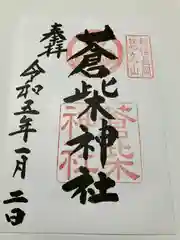 奉拝
蒼柴神社
蒼柴
神社
令和五年一月二日